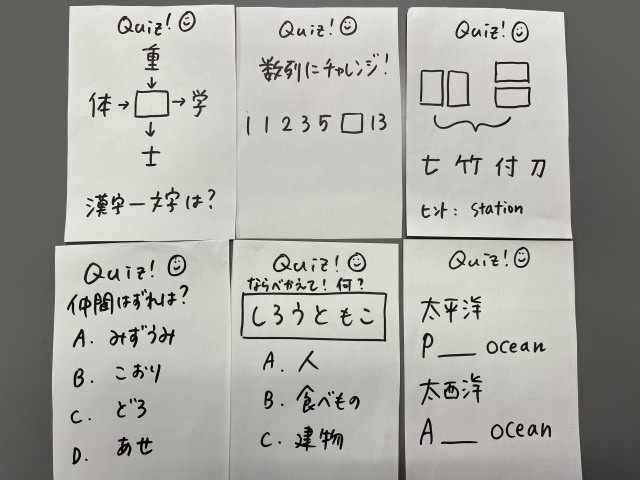 Quiz!
重
体 → □ → 学
士
漢字一文字は?
Quiz!
数列にチャレンジ!
1 1 2 3 5 □ 13
Quiz!
七 竹 付 刀
ヒント: station
Quiz!
仲間はずれは?
A. みずうみ
B. こおり
C. どろ
D. あせ
Quiz!
ならべかえて! 何?
しろうともこ
A. 人
B. 食べもの
C. 建物
Quiz!
太平洋
P___ ocean
太西洋
A___ ocean